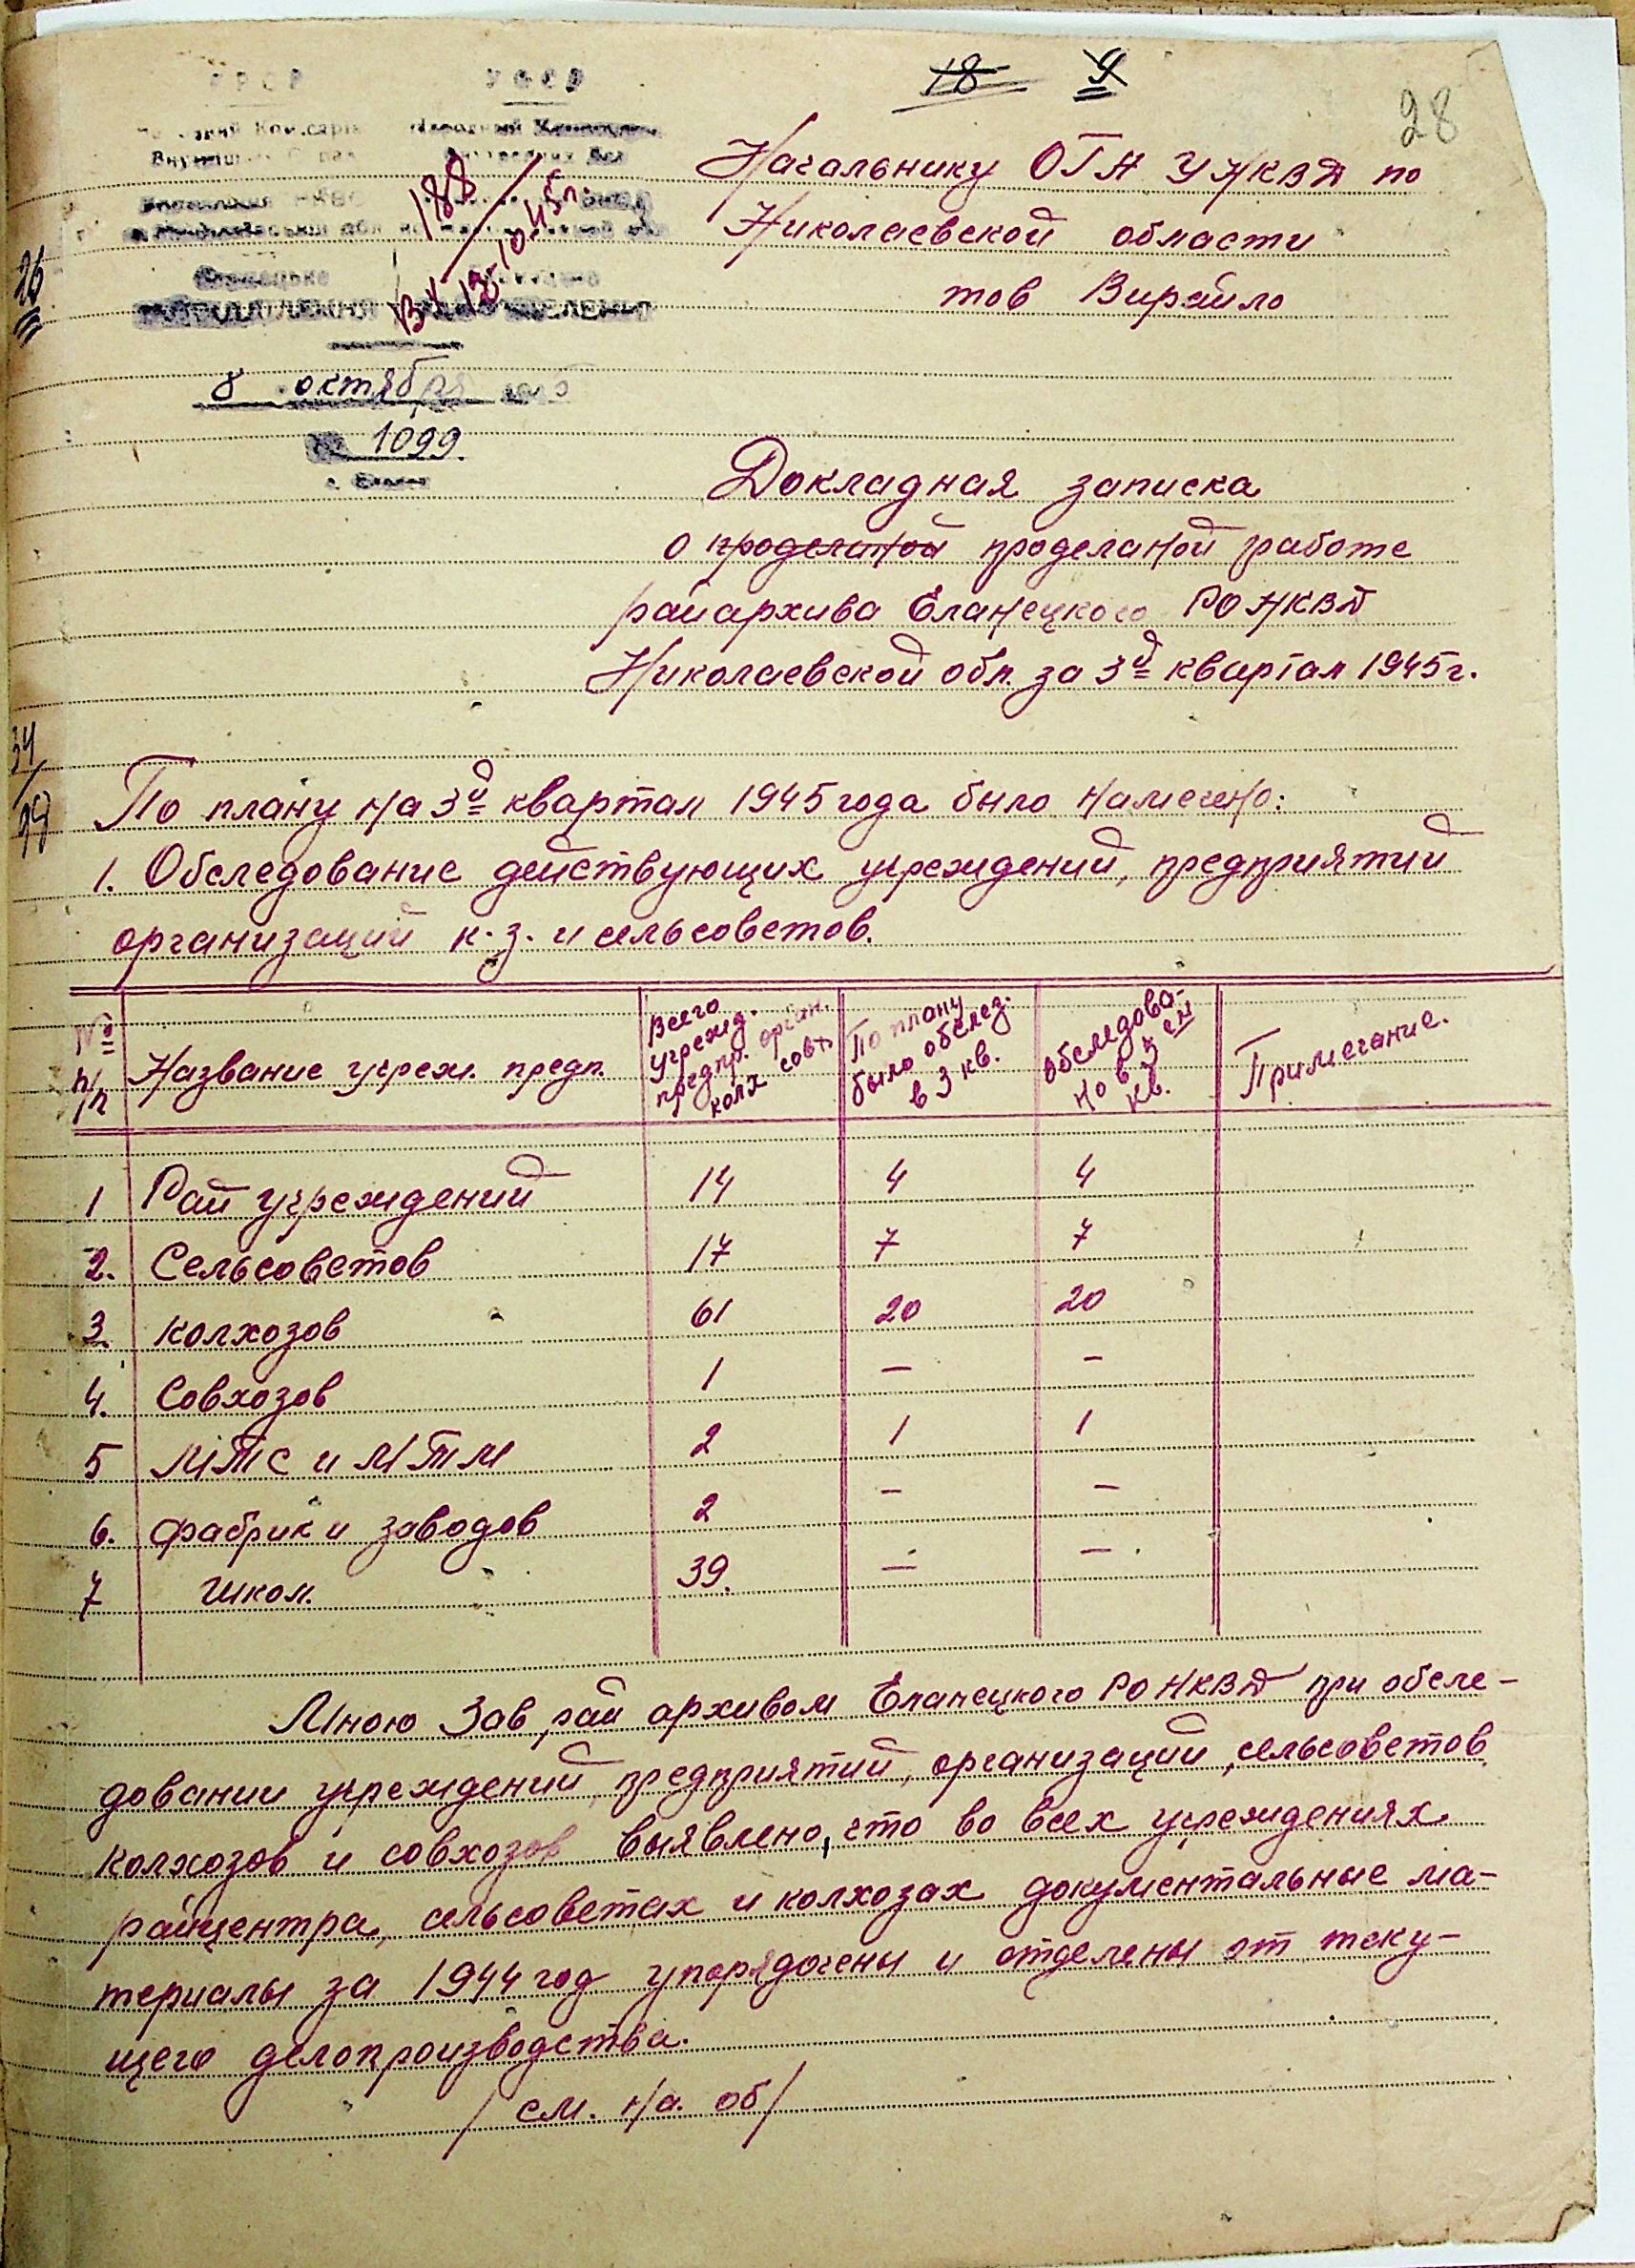 18 9
28
УРСР УССР
Народний Комісаріат Народный Комиссариат
Внутрішніх Справ Внутренних Дел
188
Вх 13-10-45г.
26
8 октября 1945
№ 1099
г. Еланец
Начальнику ОГА УНКВД по
Николаевской области
тов Вирайло
Докладная записка
о проделаной проделаной работе
райархива Еланецкого РО НКВД
Николаевской обл. за 3й квартал 1945г.
34/29
По плану на 3й квартал 1945 года было намечено:
1. Обследование действующих учреждений, предприятий
организаций к.з. и сельсоветов.
№ п/п Название учреж. предп. Всего учрежд. предпр. орган. колх совх По плану было обслед. в 3 кв. Обследовано в 3ем кв. Примечание.
1 Рай учреждений 14 4 4
2. Сельсоветов 17 7 7
3. колхозов 61 20 20
4. Совхозов 1 — —
5 МТС и МТМ 2 1 1
6. фабрик и заводов 2 — —
7 школ. 39. — —
Мною Зав рай архивом Еланецкого РО НКВД при обсле-
довании учреждений, предприятий, организаций, сельсоветов
колхозов и совхозов выявлено, что во всех учреждениях
райцентра, сельсоветах и колхозах документальные ма-
териалы за 1944 год упорядочены и отделены от теку-
щего делопроизводства.
/ см. на об /